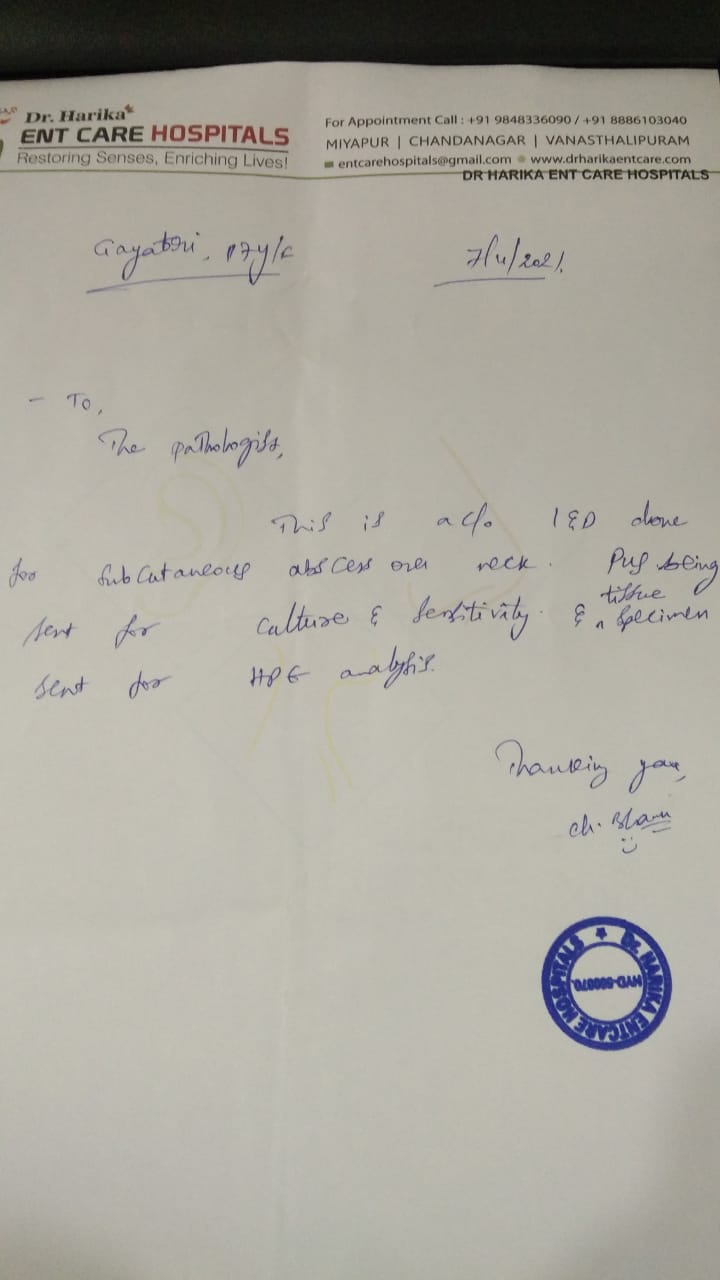 Dr. Harika
ENT CARE HOSPITALS
Restoring Senses, Enriching Lives!
For Appointment Call : +91 9848336090 / +91 8886103040
MIYAPUR | CHANDANAGAR | VANASTHALIPURAM
entcarehospitals@gmail.com www.drharikaentcare.com
DR HARIKA ENT CARE HOSPITALS
Gayatri, 17y/F
7/4/2021.
- To,
The pathologist,
This is a c/o I&D done
for subcutaneous abscess over neck. Pus being
sent for culture & sensitivity. & tissue specimen
sent for HPE analysis.
Thanking you,
Ch. Bhanu
Dr. HARIKA ENTCARE HOSPITALS
HYD-500070.